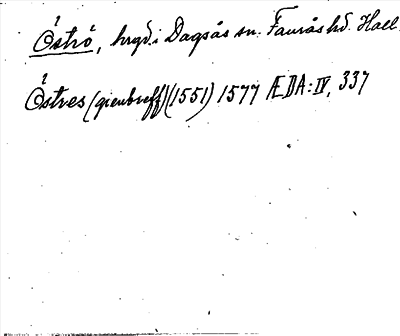 Óstró, hrgd. i Dagsås sn. Faurås hd. Hall
Óstres (gienbreff) (1551) 1577 ÆDA: IV, 337